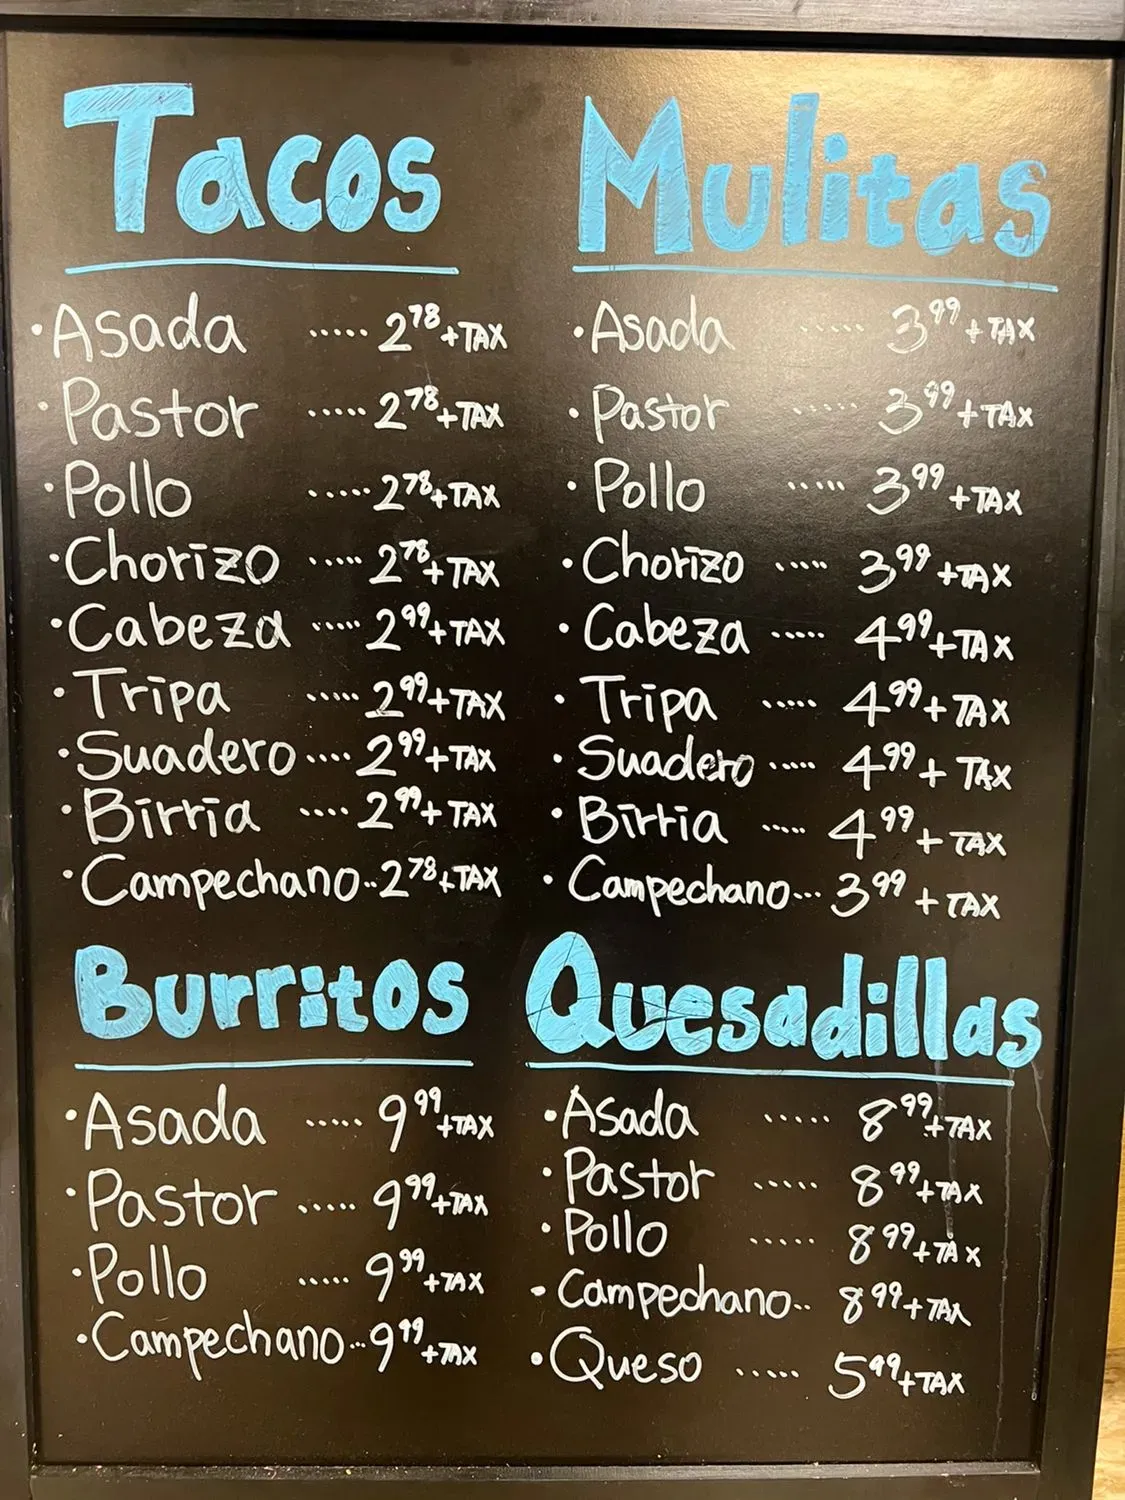 Tacos
• Asada ..... 2.78 +TAX
• Pastor ..... 2.78 +TAX
• Pollo ..... 2.78 +TAX
• Chorizo ..... 2.78 +TAX
• Cabeza ..... 2.99 +TAX
• Tripa ..... 2.99 +TAX
• Suadero .... 2.99 +TAX
• Birria .... 2.99 + TAX
• Campechano .. 2.78 +TAX
Mulitas
• Asada ..... 3.99 +TAX
• Pastor ..... 3.99 +TAX
• Pollo ..... 3.99 +TAX
• Chorizo ..... 3.99 +TAX
• Cabeza ..... 4.99 +TAX
• Tripa ..... 4.99 + TAX
• Suadero ..... 4.99 + TAX
• Birria ..... 4.99 + TAX
• Campechano ... 3.99 + TAX
Burritos
• Asada ..... 9.99 +TAX
• Pastor ..... 9.99 +TAX
• Pollo ..... 9.99 +TAX
• Campechano ... 9.99 +TAX
Quesadillas
• Asada ..... 8.99 +TAX
• Pastor ..... 8.99 +TAX
• Pollo ..... 8.99 +TAX
• Campechano .. 8.99 +TAX
• Queso ..... 5.99 +TAX